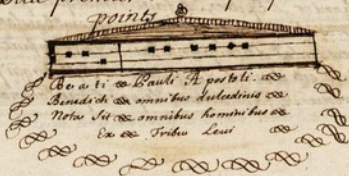 points
Be a ti Pauli Apostoli.
Benedicti omnibus dulcedinis
Nota Sit omnibus hominibus
Ex Tribu Leui